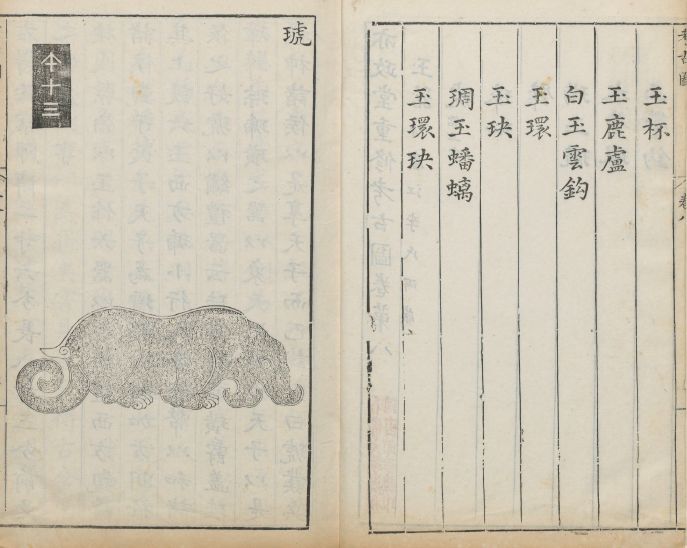 考古圖
卷八
玉杯
玉鹿盧
白玉雲鈎
玉環
玉玦
琱玉蟠螭
玉環玦
琥
夲十三